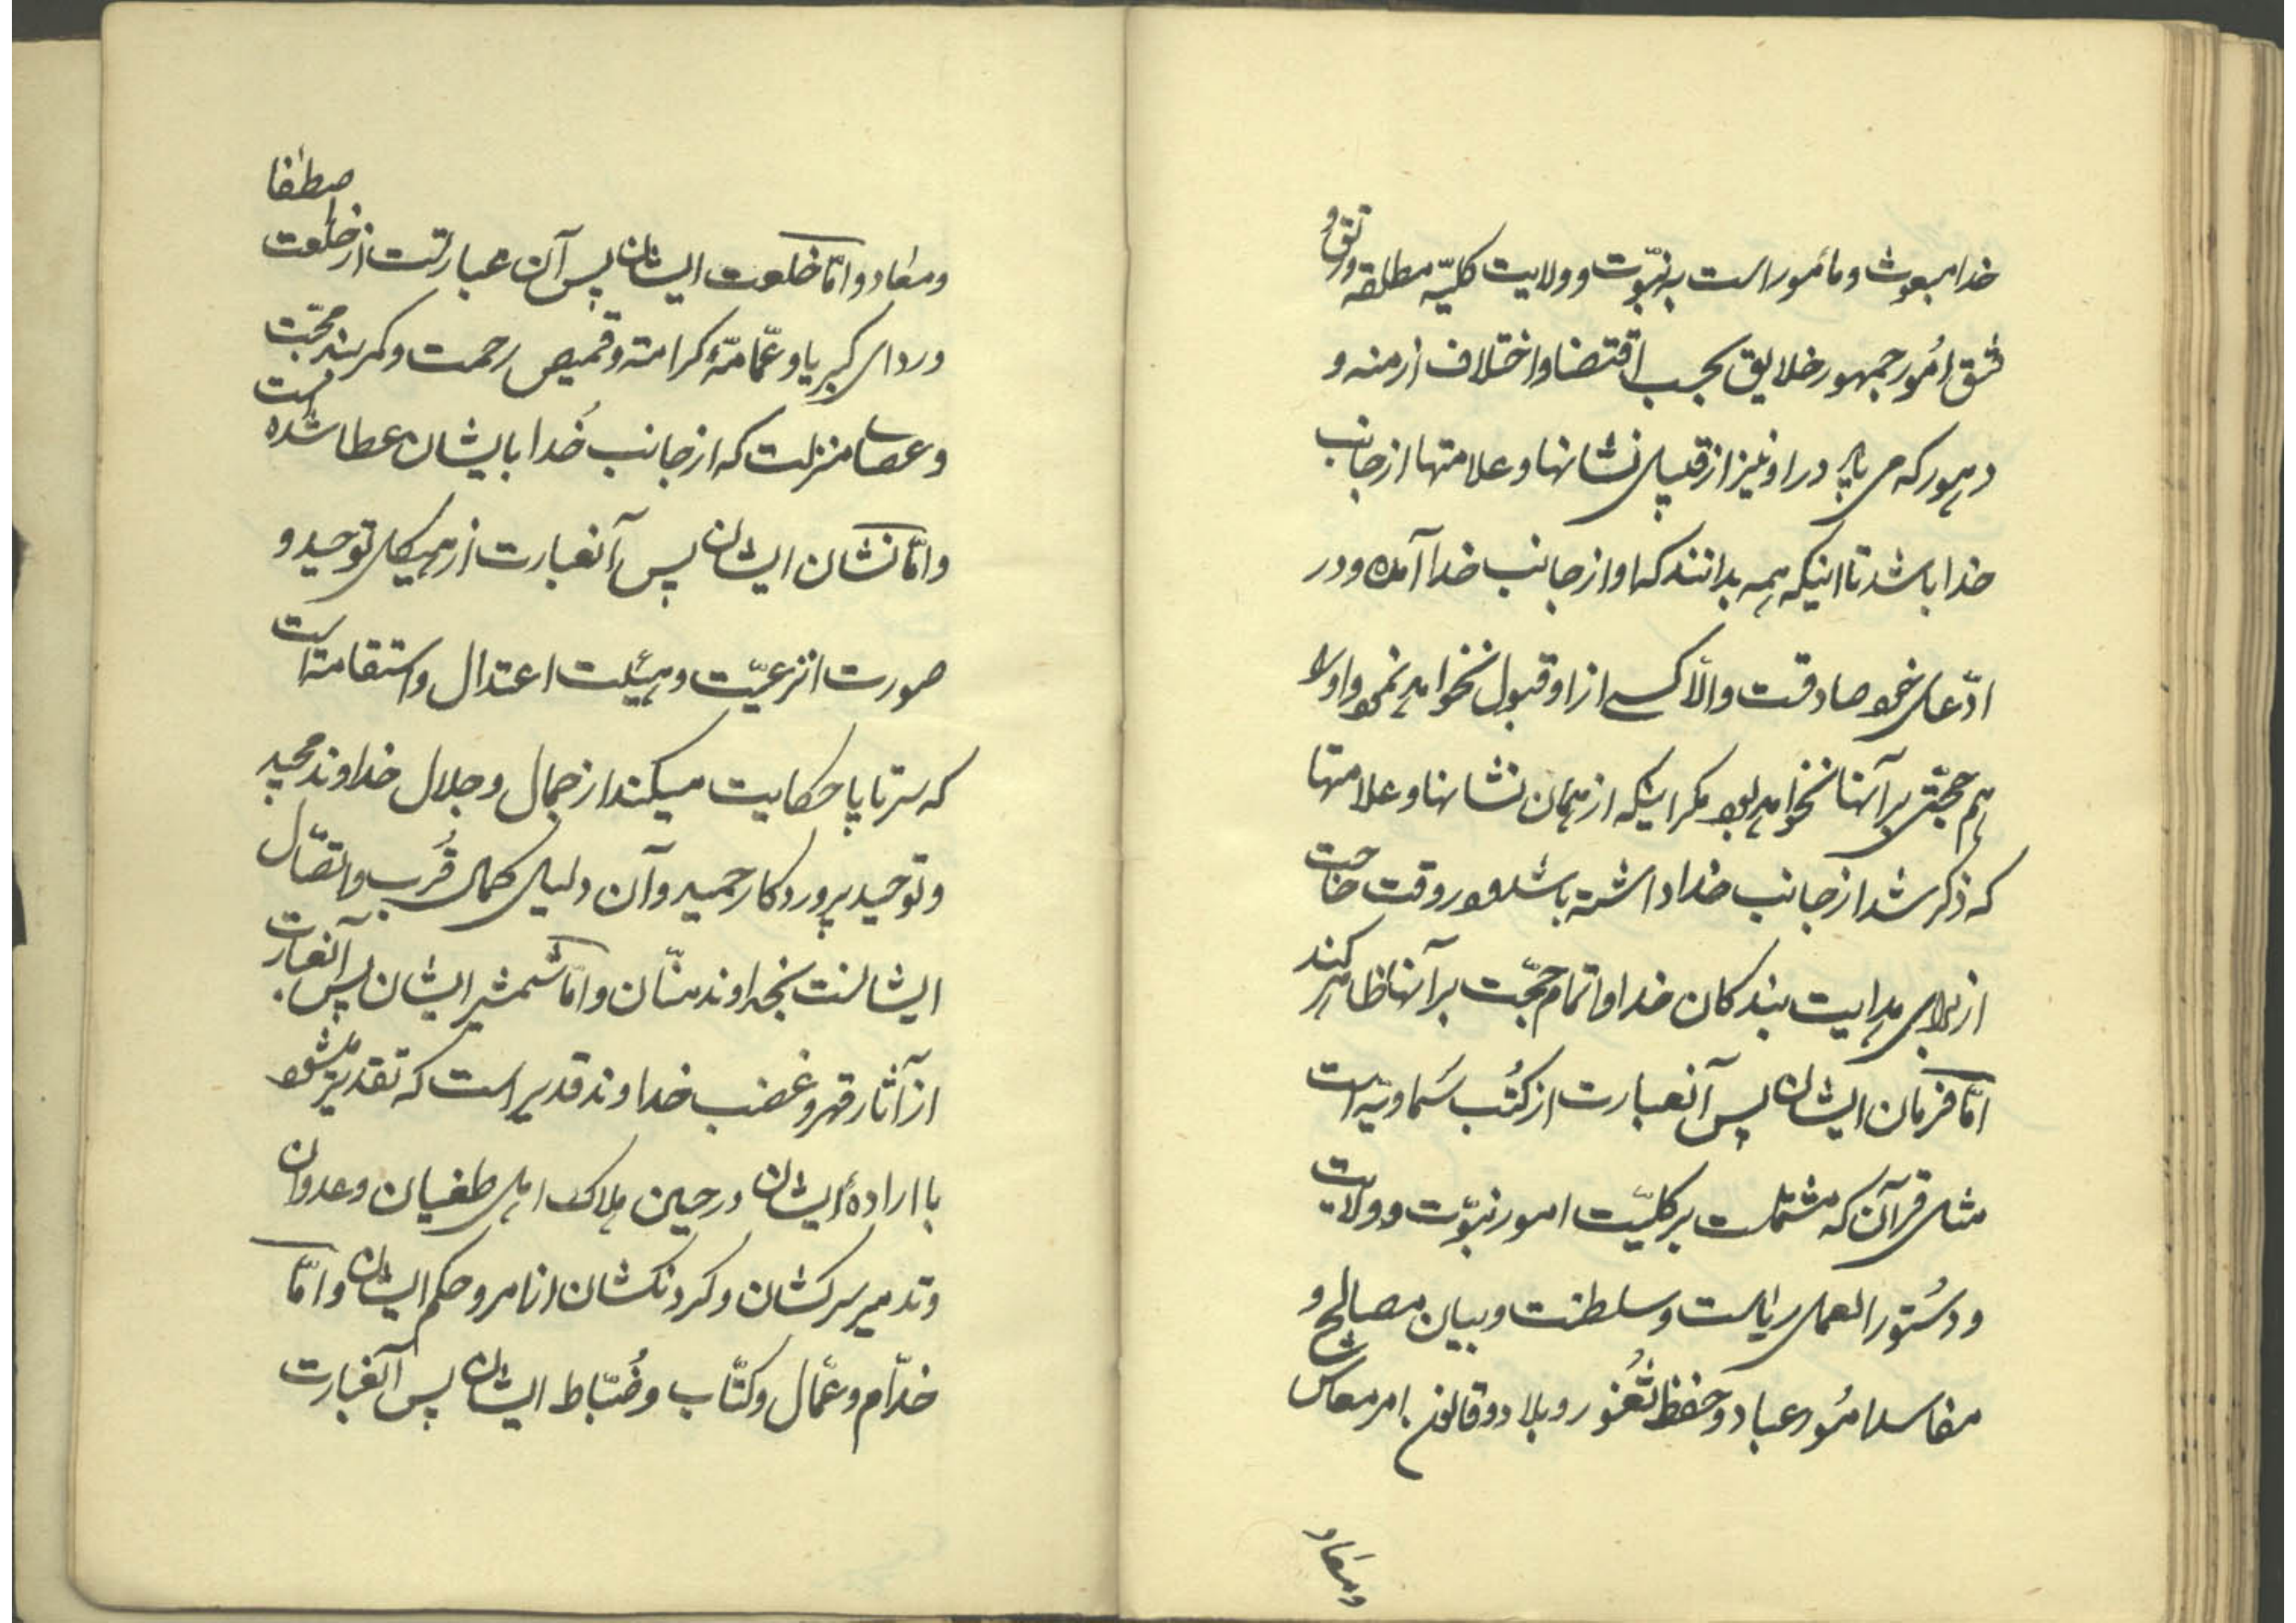 خدا مبعوث و مأمور است به نبوّت و ولایت کلیّه مطلقه و رتق و
فتق اُمُور جمهور خلایق بحسب اقتضا و اختلاف ازمنه و
دهور که می باید در او نیز از قبیل نشانها و علامتها از جانب
خدا باشد تا اینکه همه بدانند که او از جانب خدا آمده و در
ادّعای خود صادقست والّا کسی از او قبول نخواهد نمود و او را
هم حجّتی بر آنها نخواهد بود مکر اینکه از همان نشانها و علامتها
که ذکر شد از جانب خدا داشته باشد و در وقت حاجت
از برای هدایت بندکان خدا و اتمام حجّت بر آنها ظاهر کند
امّا فرمان ایشان پس آنعبارت از کُتُب سَماویّه است
مثل قرآن که مشتملست بر کلیّت امور نبوّت و ولایت
و دسُتور العمل ریاست و سلطنت و بیان مصالح و
مفاسد امُور عباد و حفظ ثُغُور و بلاد و قانون امر معاش
و معاد و
و معاد و امّا خلعت ایشان پس آن عبارتست از خلعت اصطفا
و ردای کبریا و عمّامهٔ کرامة و قمیص رحمت و کمربند محبّت
و عصای منزلت که از جانب خُدا بایشان عطا شده است
و امّا نشان ایشان پس آنعبارت از هیکل توحید و
صورت انزعیّت و هیئت اعتدال و استقامة است
که سر تا پا حکایت میکند از جمال و جلال خداوند مجید
و توحید پروردکار حمید و آن دلیل کمال قُرب و اتّصال
ایشانست بخداوند منّان و امّا شمشیر ایشان پس آنعبارت
از آثار قهر و غضب خداوند قدیر است که تقدیر میشود
با ارادهٔ ایشان در حین هلاک اهل طغیان و عدوان
و تدمیر سرکشان و کردنکشان از امر و حکم ایشان و امّا
خدّام و عمّال و کتّاب و ضُبّاط ایشان پس آنعبارت